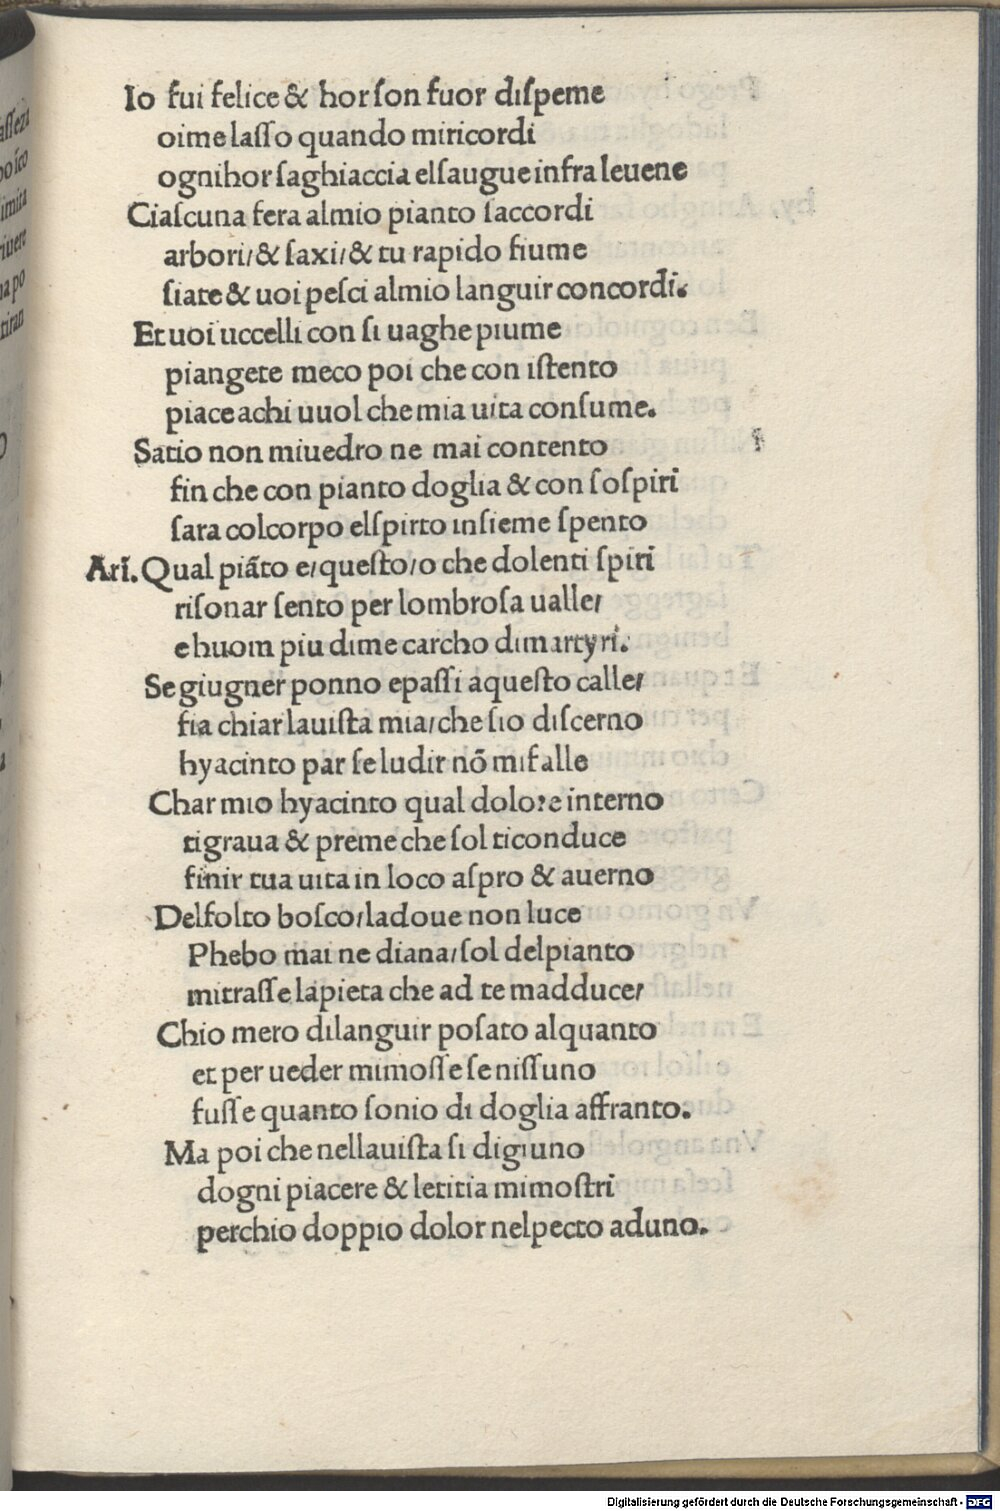 Io fui felice & hor ſon fuor diſpeme
oime laſſo quando miricordi
ognihor ſaghiaccia elſaugue infra leuene
Ciaſcuna fera almio pianto ſaccordi
arbori/& ſaxi/& tu rapido fiume
ſiate & uoi peſci almio languir concordi.
Et uoi uccelli con ſi uaghe piume
piangete meco poi che con iſtento
piace achi uuol che mia uita conſume.
Satio non miuedro ne mai contento
fin che con pianto doglia & con ſoſpiri
ſara colcorpo elſpirto inſieme ſpento
Ari. Qual piãto e/queſto/o che dolenti ſpiri
riſonar ſento per lombroſa ualle/
e huom piu dime carcho dimartyri.
Se giugner ponno epaſſi aqueſto calle/
fia chiar lauiſta mia/che ſio diſcerno
hyacinto par ſe ludir nõ mifalle
Char mio hyacinto qual dolore interno
tigraua & preme che ſol ticonduce
finir tua uita in loco aſpro & auerno
Delfolto boſco/ladoue non luce
Phebo mai ne diana/ſol delpianto
mitraſſe lapieta che ad te madduce/
Chio mero dilanguir poſato alquanto
et per ueder mimoſſe ſe niſſuno
fuſſe quanto ſonio di doglia affranto.
Ma poi che nellauiſta ſi digiuno
dogni piacere & letitia mimoſtri
perchio doppio dolor nelpecto aduno.
Digitalisierung gefördert durch die Deutsche Forschungsgemeinschaft - DFG